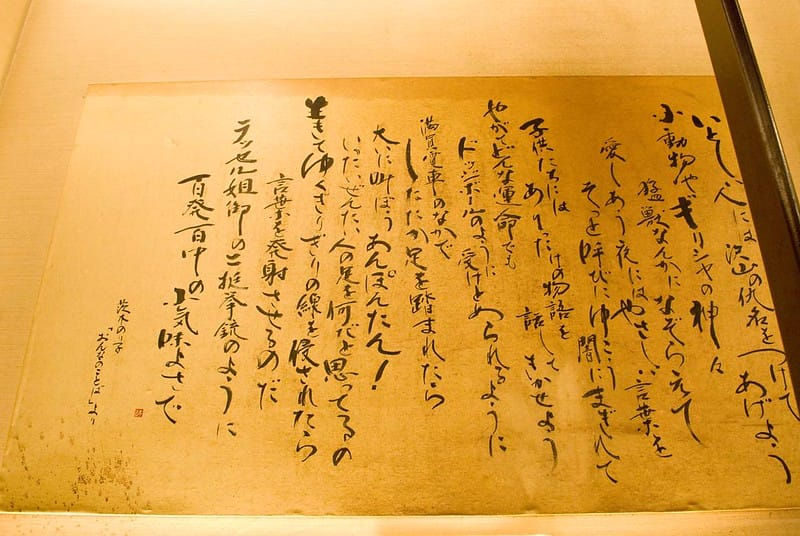 いとしい人には 沢山の仇名をつけて あげよう
小動物や ギリシャの神々
猛獣なんかになぞらえて
愛しあう夜には やさしい言葉を
そっと呼びにゆこう 闇にまぎれて
子供たちには ありったけの物語を 話してきかせよう
やがてどんな運命でも
ドッジボールのように 受けとめられるように
満員電車のなかで
したたか足を踏まれたら
大いに叫ぼう あんぽんたん!
いったいぜんたい 人の足を何だと思ってるの
生きてゆくぎりぎりの線を侵されたら
言葉を発射させるのだ
ラッセル姐御の二挺拳銃のように
百発百中の小気味よさで
茨木のり子
「おんなのことば」より